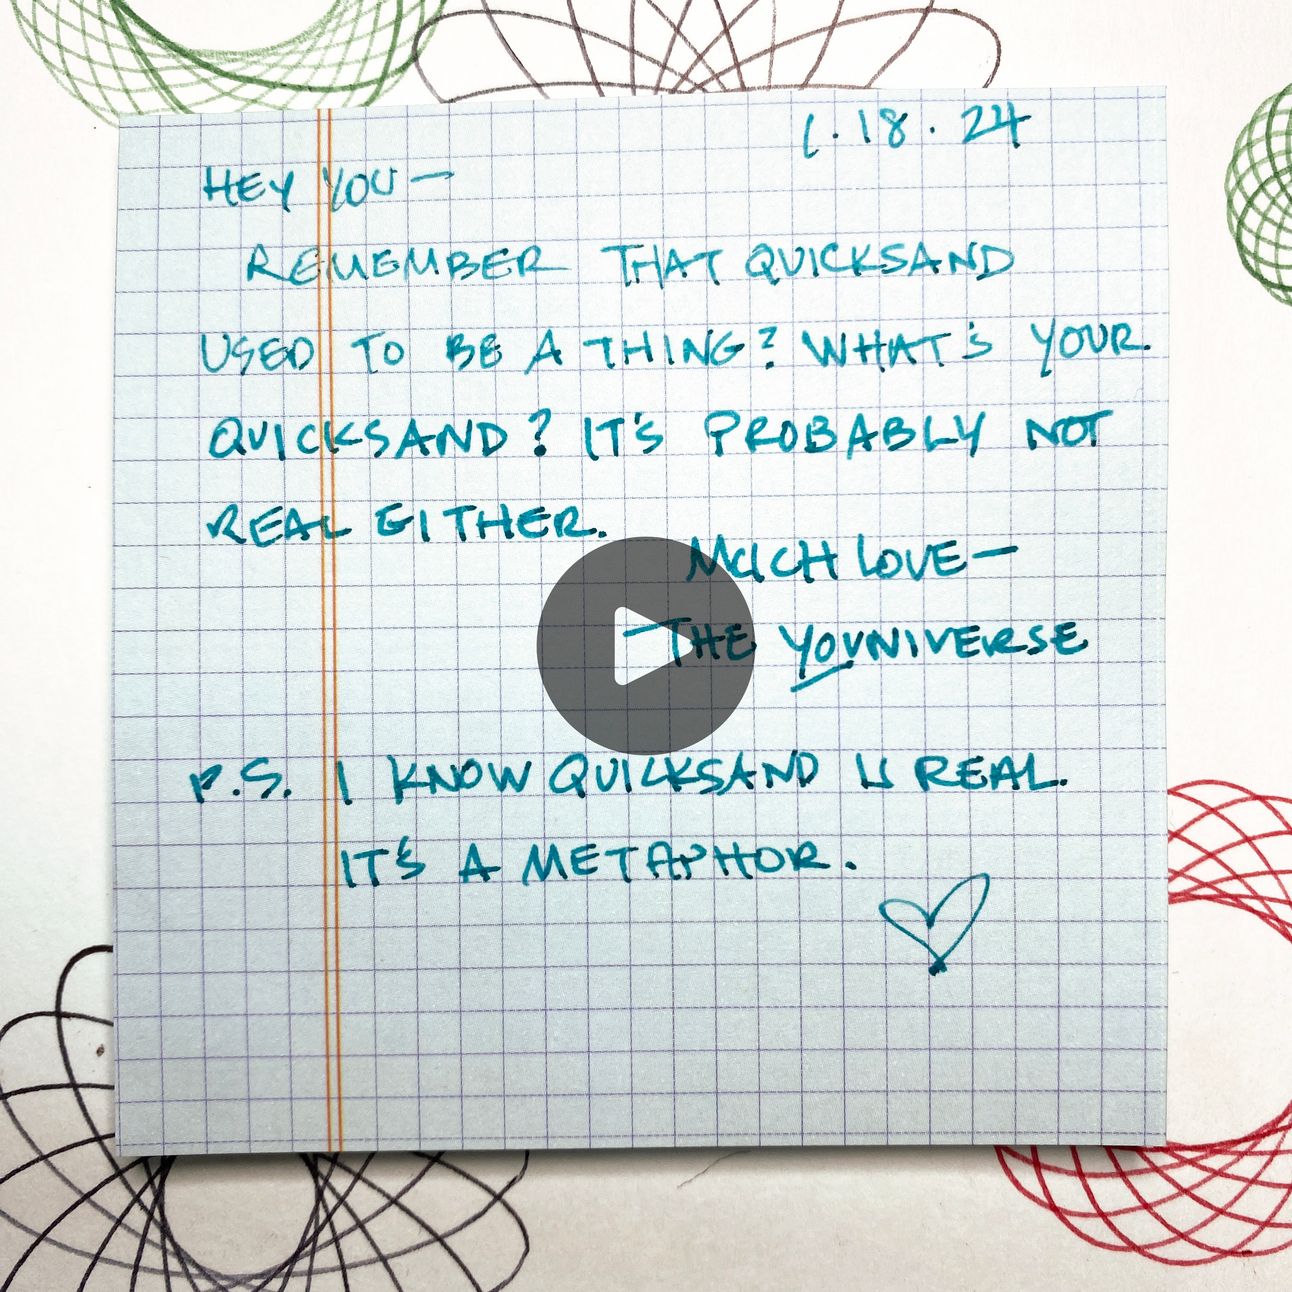 1.18.24
HEY YOU—
REMEMBER THAT QUICKSAND
USED TO BE A THING? WHAT'S YOUR
QUICKSAND? IT'S PROBABLY NOT
REAL EITHER.
MUCH LOVE—
—THE YOUNIVERSE
P.S. I KNOW QUICKSAND IS REAL.
IT'S A METAPHOR.